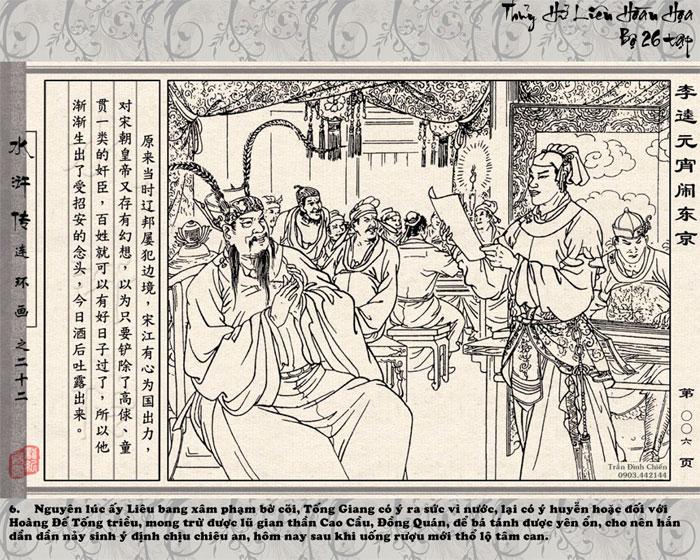 Thủy Hử Liên Hoàn Họa
Bộ 26 tập
李逵元宵闹东京
原来当时辽邦屡犯边境，宋江有心为国出力，
对宋朝皇帝又存有幻想，以为只要铲除了高俅、童
贯一类的奸臣，百姓就可以有好日子过了，所以他
渐渐生出了受招安的念头，今日酒后吐露出来。
水浒传连环画之二十二
第〇〇六页
Trần Đình Chiến
0903.442144
6. Nguyên lúc ấy Liêu bang xâm phạm bờ cõi, Tống Giang có ý ra sức vì nước, lại có ý huyễn hoặc đối với
Hoàng Đế Tống triều, mong trừ được lũ gian thần Cao Cầu, Đồng Quán, để bá tánh được yên ổn, cho nên hắn
dần dần nảy sinh ý định chịu chiêu an, hôm nay sau khi uống rượu mới thổ lộ tâm can.